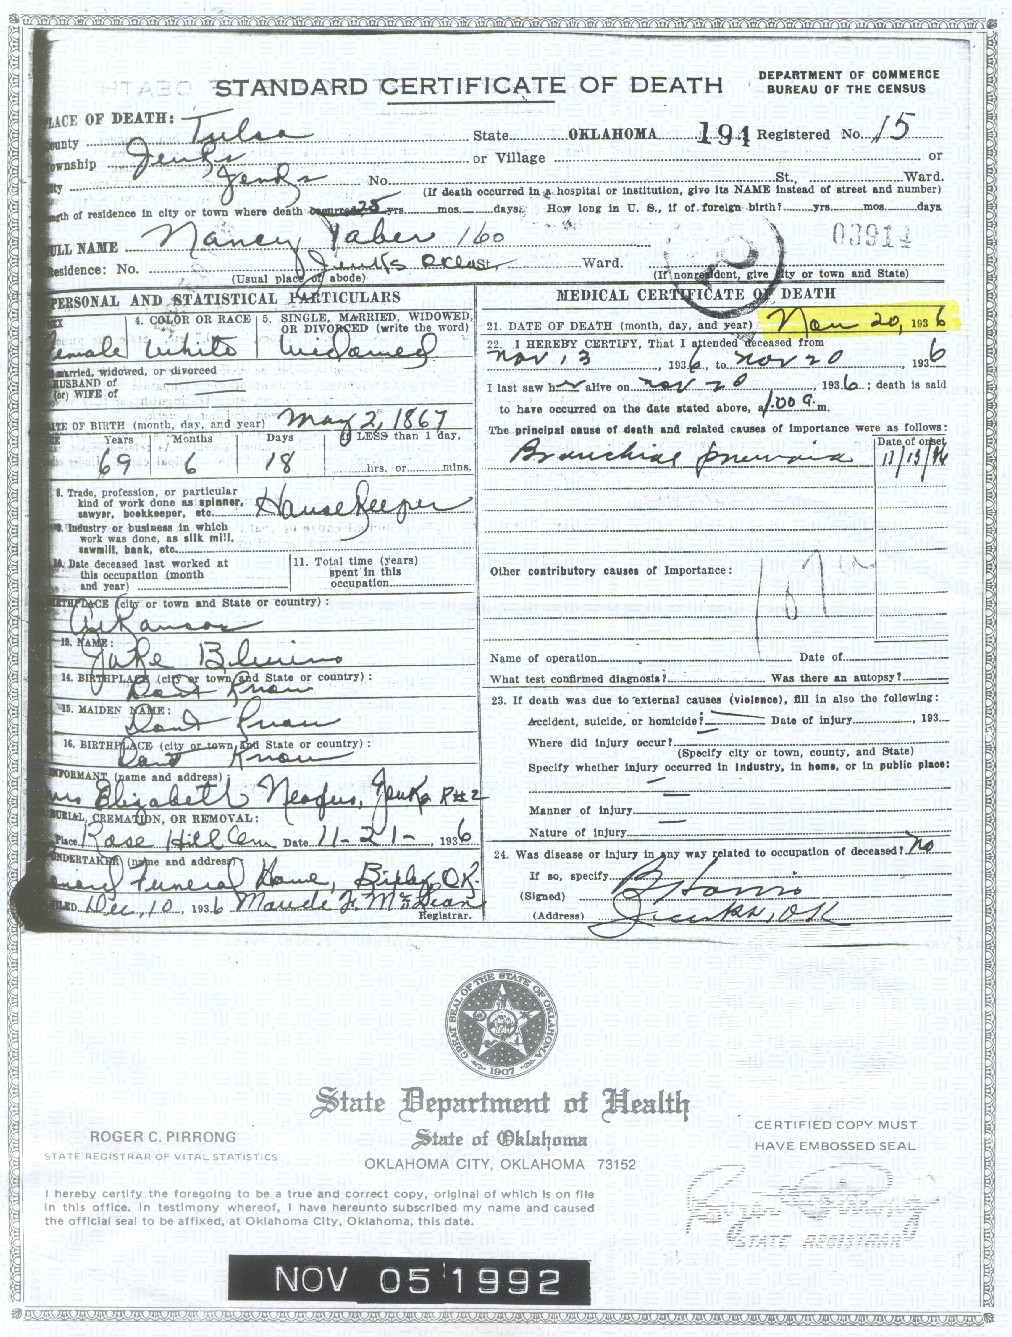 STANDARD CERTIFICATE OF DEATH
DEPARTMENT OF COMMERCE
BUREAU OF THE CENSUS
LACE OF DEATH:
ounty Tulsa State OKLAHOMA 194 Registered No. 15
ownship Jenks or Village or
ity Jenks No. St., Ward.
(If death occurred in a hospital or institution, give its NAME instead of street and number)
gth of residence in city or town where death occurred 25 yrs. mos. days. How long in U. S., if of foreign birth? yrs. mos. days
ULL NAME Nancy Taber 160 03914
Residence: No. Jenks Okla St. Ward.
(Usual place of abode) (If nonresident, give city or town and State)
PERSONAL AND STATISTICAL PARTICULARS
EX
emale
4. COLOR OR RACE
White
5. SINGLE, MARRIED, WIDOWED, OR DIVORCED (write the word)
Widowed
married, widowed, or divorced
HUSBAND of
(or) WIFE of
TE OF BIRTH (month, day, and year) May 2, 1867
GE Years Months Days If LESS than 1 day,
69 6 18 hrs. or mins.
8. Trade, profession, or particular
kind of work done as spinner,
sawyer, bookkeeper, etc. Housekeeper
9. Industry or business in which
work was done, as silk mill,
sawmill, bank, etc.
10. Date deceased last worked at
this occupation (month
and year)
11. Total time (years)
spent in this
occupation
BIRTHPLACE (city or town and State or country):
Arkansas
13. NAME:
Jake
14. BIRTHPLACE (city or town and State or country):
Dont Know
15. MAIDEN NAME:
Dont Know
16. BIRTHPLACE (city or town and State or country):
Dont Know
INFORMANT (name and address)
Mrs Elizabeth Jenks R#2
BURIAL, CREMATION, OR REMOVAL:
Place Rose Hill Cem Date 11-21-, 1936
UNDERTAKER (name and address)
Funeral Home, Bixby, OK.
FILED Dec, 10, 1936 Maude
Registrar.
MEDICAL CERTIFICATE OF DEATH
21. DATE OF DEATH (month, day, and year) Nov 20, 1936
22. I HEREBY CERTIFY, That I attended deceased from
Nov 13, 1936, to Nov 20 1936
I last saw h alive on Nov 20, 1936; death is said
to have occurred on the date stated above, a 1:00 a. m.
The principal cause of death and related causes of importance were as follows:
Date of onset
Bronchial pneumonia 11/13/36
Other contributory causes of importance:
107
Name of operation Date of
What test confirmed diagnosis? Was there an autopsy?
23. If death was due to external causes (violence), fill in also the following:
Accident, suicide, or homicide? Date of injury , 193
Where did injury occur?
(Specify city or town, county, and State)
Specify whether injury occurred in industry, in home, or in public place:
Manner of injury
Nature of injury
24. Was disease or injury in any way related to occupation of deceased? No
If so, specify
(Signed) Harris
(Address) Jenks, OK
GREAT SEAL OF THE STATE OF OKLAHOMA
1907
State Department of Health
State of Oklahoma
OKLAHOMA CITY, OKLAHOMA 73152
ROGER C. PIRRONG
STATE REGISTRAR OF VITAL STATISTICS
CERTIFIED COPY MUST
HAVE EMBOSSED SEAL
I hereby certify the foregoing to be a true and correct copy, original of which is on file
in this office. In testimony whereof, I have hereunto subscribed my name and caused
the official seal to be affixed, at Oklahoma City, Oklahoma, this date.
STATE REGISTRAR
NOV 05 1992